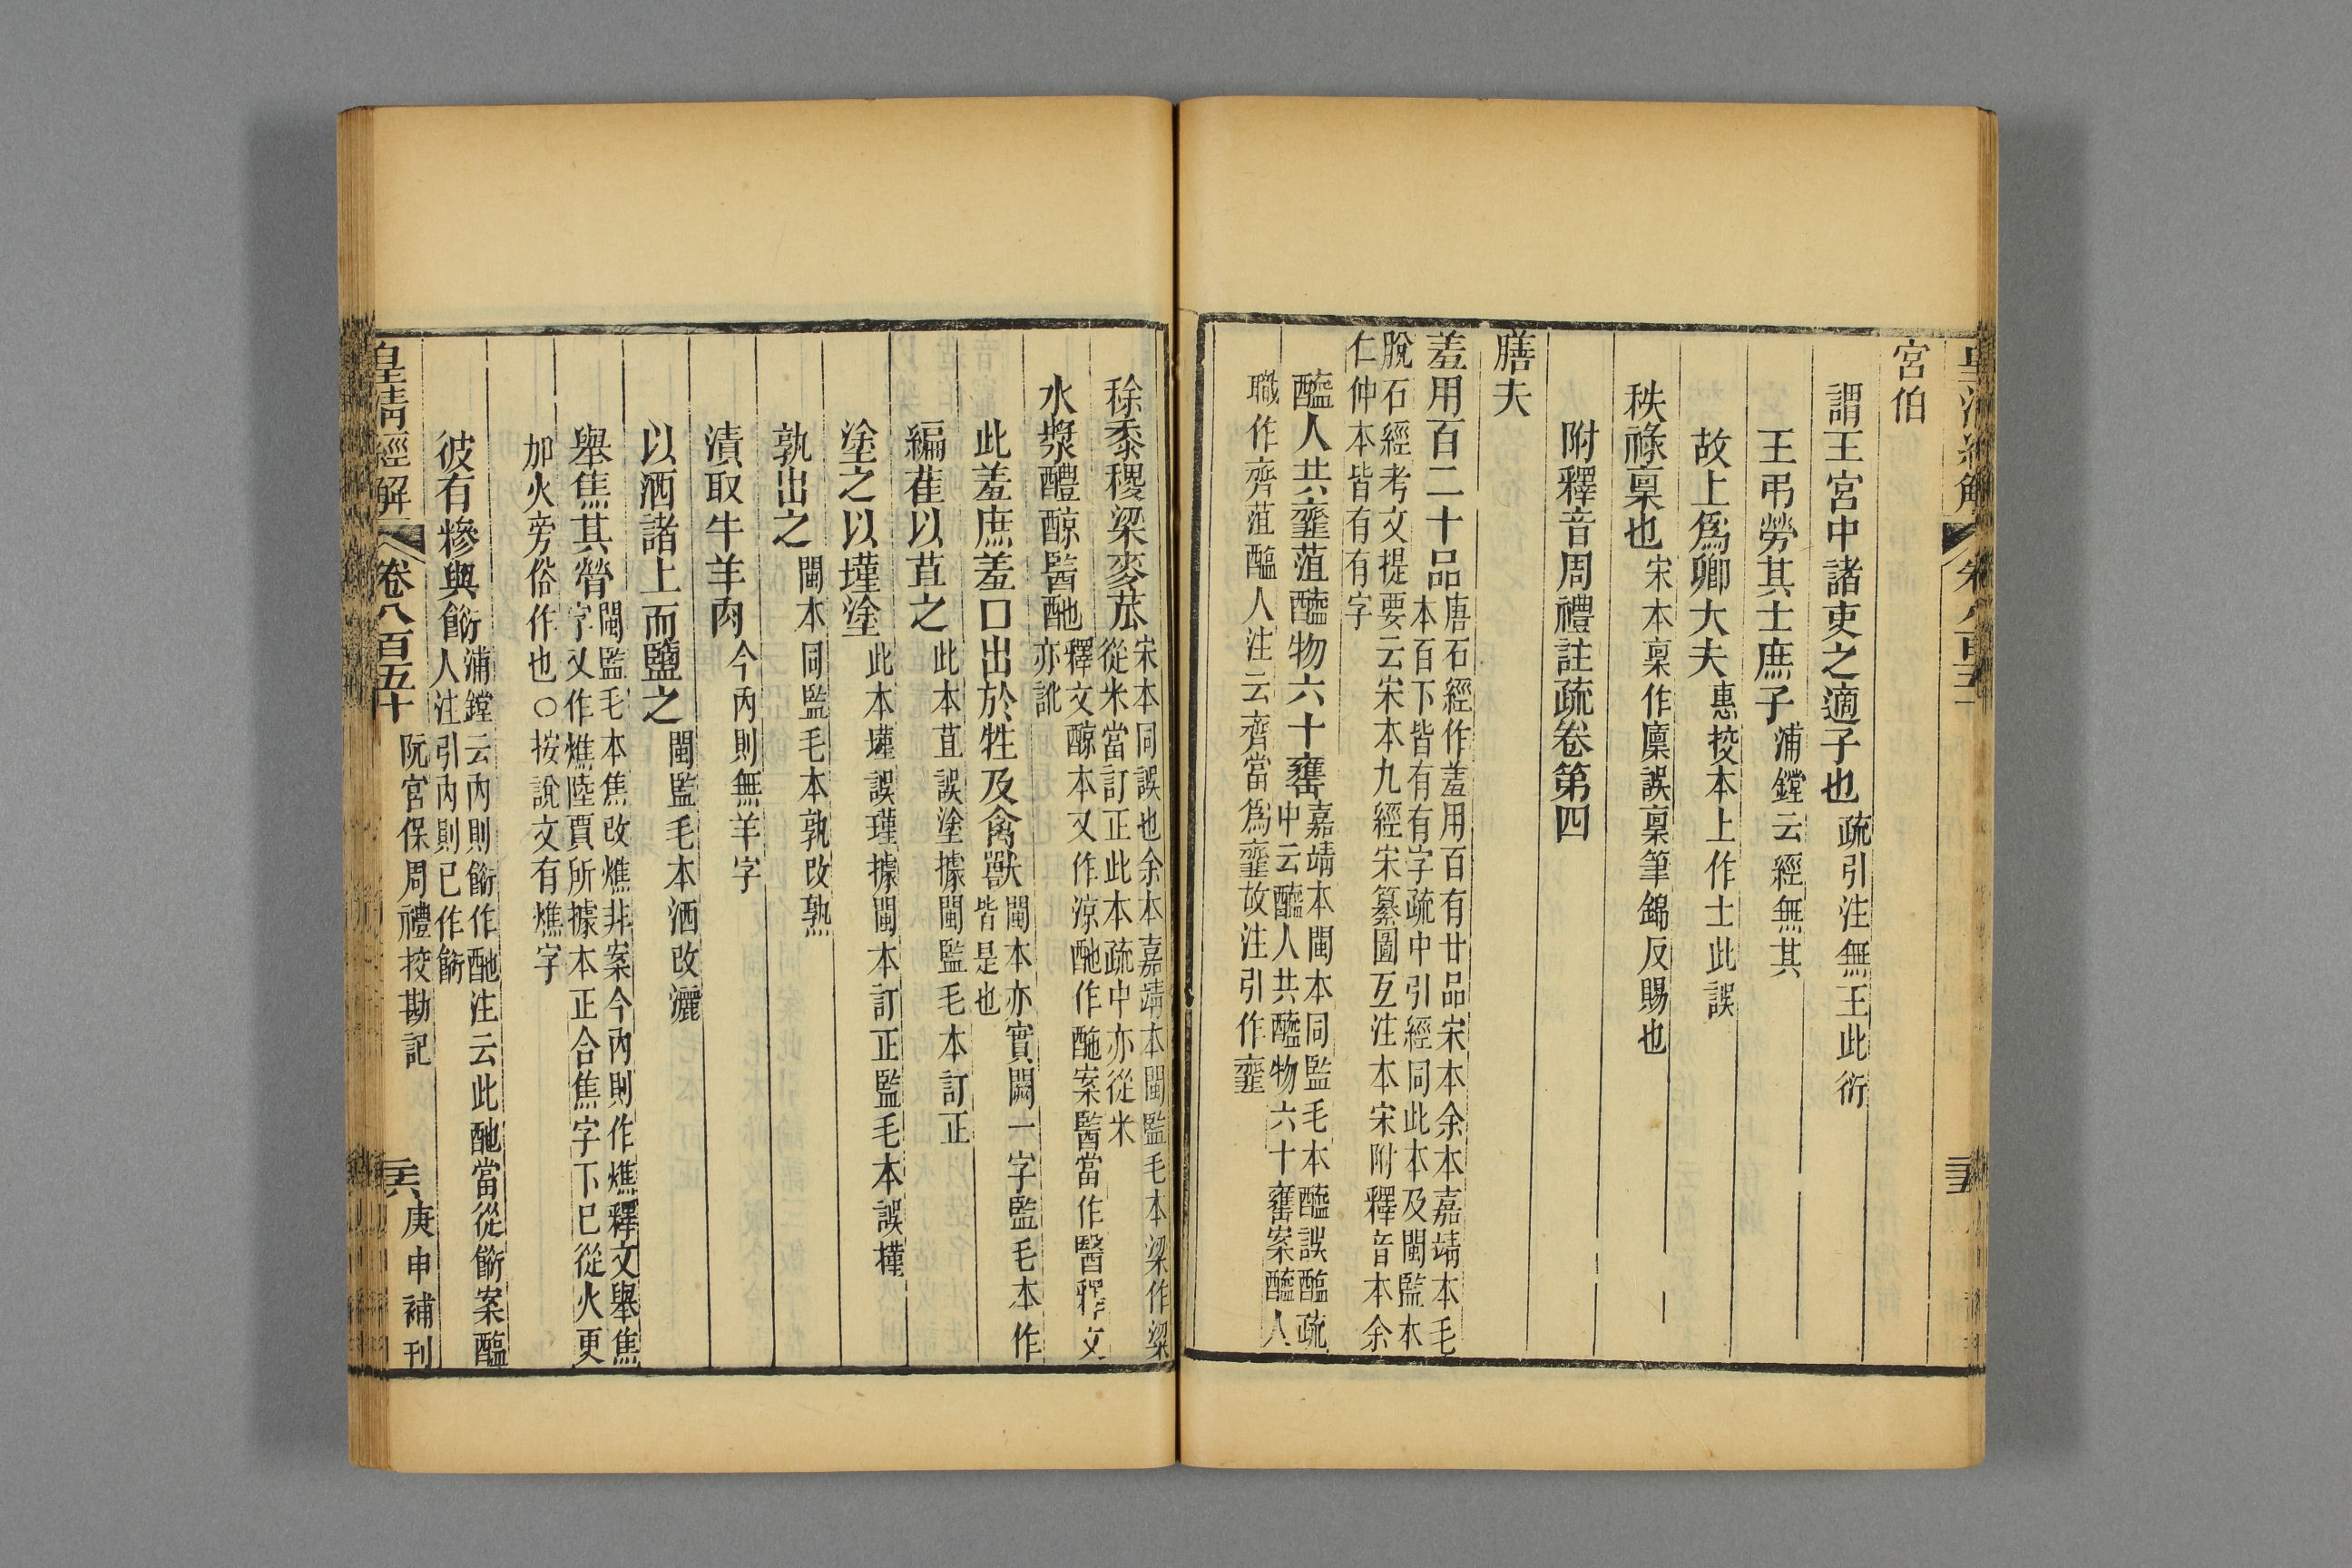 宮伯
謂王宮中諸吏之適子也疏引注無王此衍
王弔勞其士庶子浦鏜云經無其
故上爲卿大夫惠挍本上作士此誤
秩祿稟也宋本稟作廩誤稟筆錦反賜也
附釋音周禮註疏卷第四
膳夫
羞用百二十品唐石經作羞用百有廿品宋本余本嘉靖本毛
本百下皆有有字疏中引經同此本及閩監本
脫石經考文提要云宋本九經宋纂圖互注本宋附釋音本余
仁仲本皆有有字
醢人共齏菹醢物六十罋嘉靖本閩本同監毛本醢誤醯疏
中云醯人共醯物六十罋案醯人
職作齊菹醢人注云齊當爲齏故注引作齏
稌黍稷梁麥苽宋本同誤也余本嘉靖本閩監毛本梁作粱
從米當訂正此本疏中亦從米
水漿醴醇醫酏釋文醇本又作涼酏作酏案醫當作醫釋文
亦訛
此羞庶羞口出於牲及禽獸閩本亦實闕一字監毛本作
皆是也
編萑以苴之此本苴誤塗據閩監毛本訂正
塗之以墐塗此本墐誤瑾據閩本訂正監毛本誤槿
孰出之閩本同監毛本孰改熟
漬取牛羊肉今內則無羊字
以洒諸上而鹽之閩監毛本洒改灑
舉焦其膋閩監毛本焦改燋非案今內則作燋釋文舉焦
字又作燋陸賈所據本正合焦字下已從火更
加火旁俗作也○按說文有燋字
彼有糝與䬫浦鏜云內則䬫作酏注云此酏當從䬫案醢
人注引內則已作䬫
皇清經解
卷八百五十
阮宮保周禮挍勘記
三六
庚申補刊